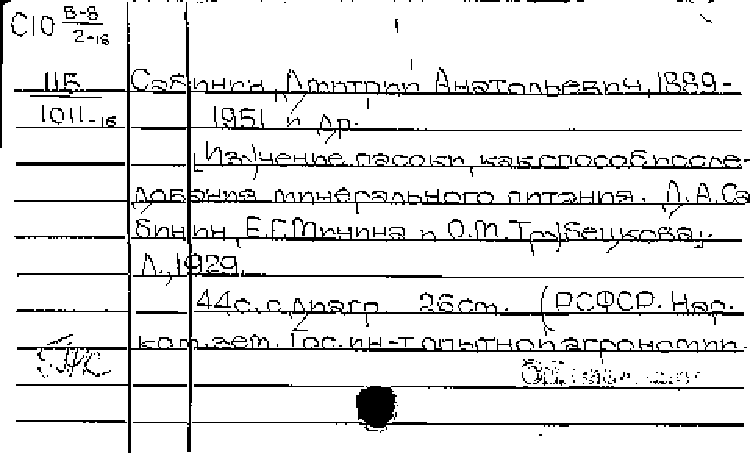 С10 В-8
2-16
115
1011-16
Сабинин, Дмитрий Анатольевич, 1889-
1951 и др.
Изучение пасоки, как способ иссле-
дования минерального питания. Д.А.Са
бинин, Е.Г.Минина и О.М.Трубецкова.
Л., 1929.
44с. с диагр. 26см. (РСФСР. Нар.
ком.зем. Гос.ин-т опытной агрономии.